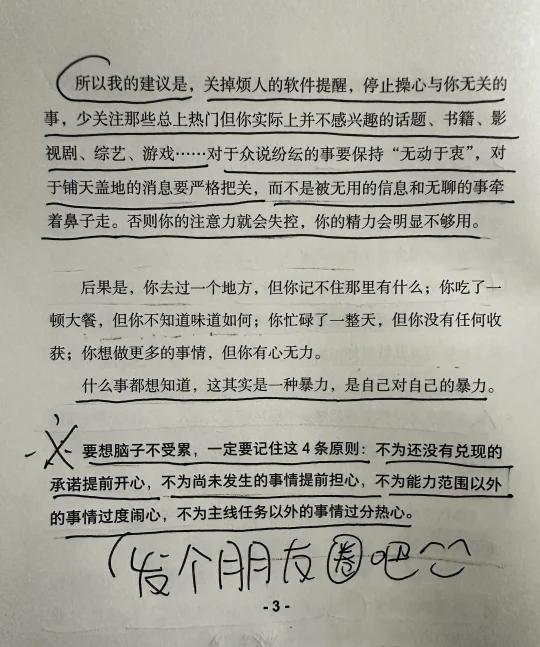 所以我的建议是，关掉烦人的软件提醒，停止操心与你无关的
事，少关注那些总上热门但你实际上并不感兴趣的话题、书籍、影
视剧、综艺、游戏……对于众说纷纭的事要保持“无动于衷”，对
于铺天盖地的消息要严格把关，而不是被无用的信息和无聊的事牵
着鼻子走。否则你的注意力就会失控，你的精力会明显不够用。
后果是，你去过一个地方，但你记不住那里有什么；你吃了一
顿大餐，但你不知道味道如何；你忙碌了一整天，但你没有任何收
获；你想做更多的事情，但你有心无力。
什么事都想知道，这其实是一种暴力，是自己对自己的暴力。
要想脑子不受累，一定要记住这4条原则：不为还没有兑现的
承诺提前开心，不为尚未发生的事情提前担心，不为能力范围以外
的事情过度闹心，不为主线任务以外的事情过分热心。
（发个朋友圈吧^^
- 3 -